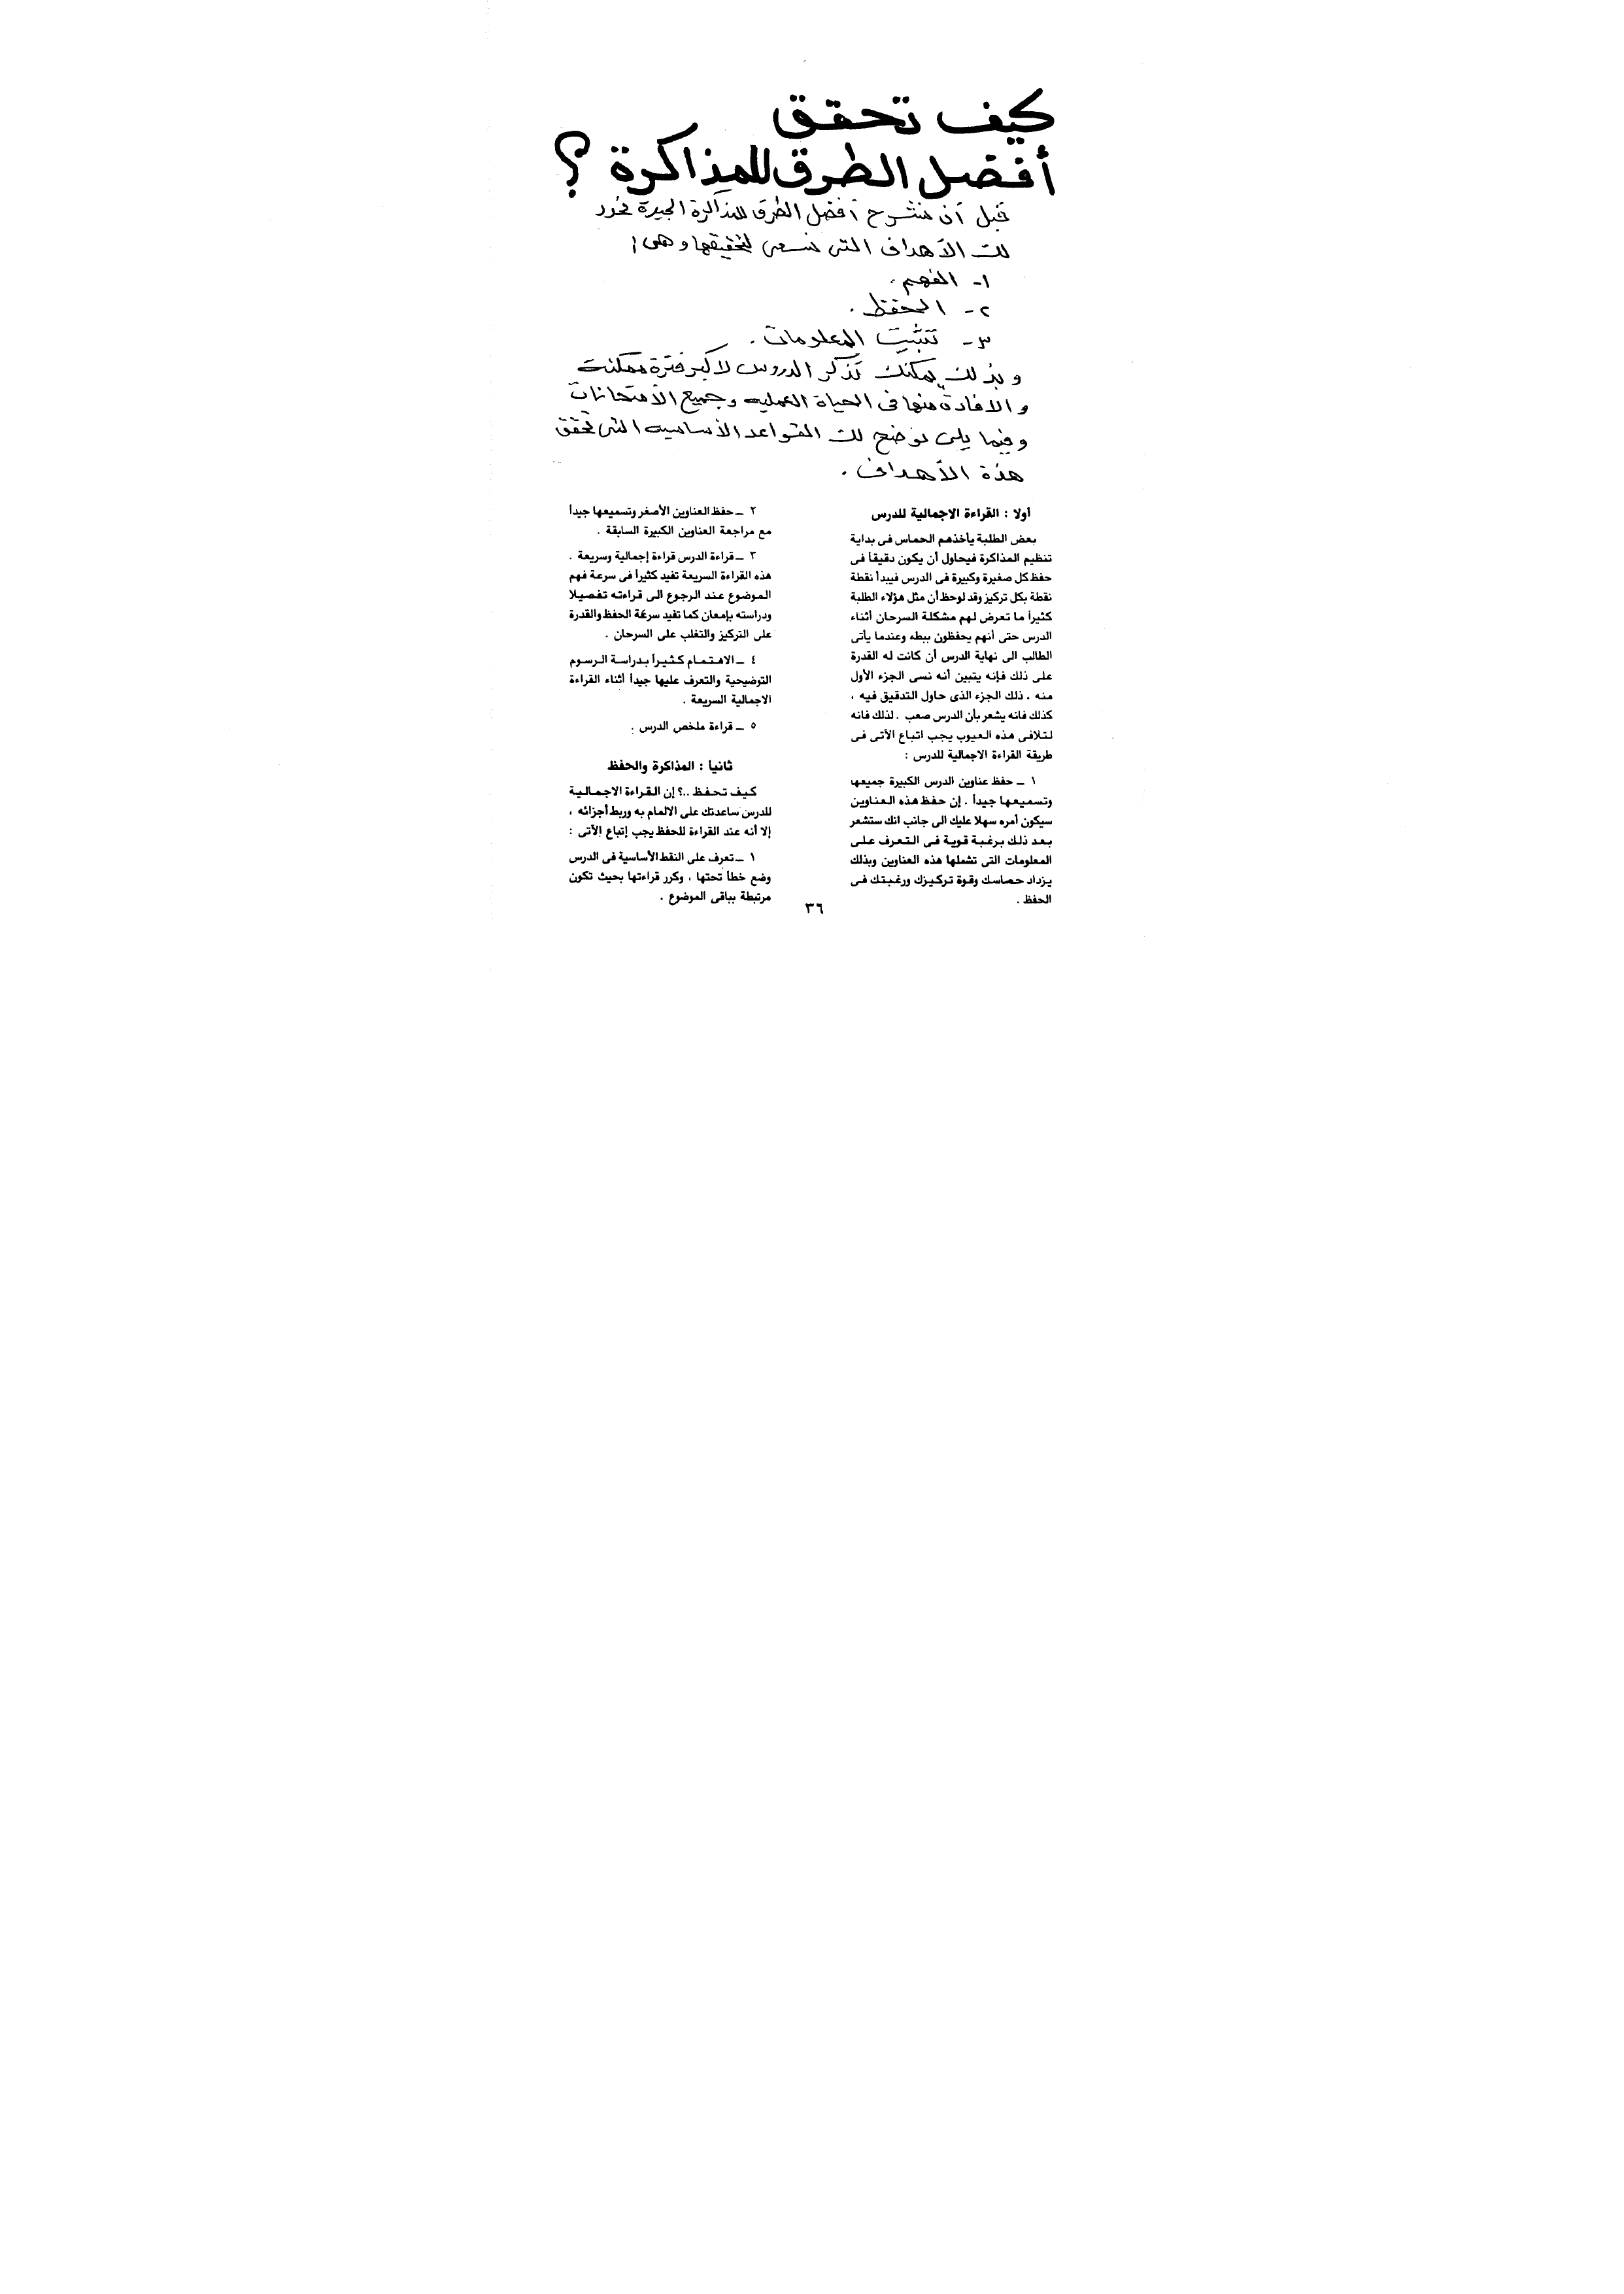 كيف تحقق
أفضل الطرق للمذاكرة ؟
قبل أن نشرح أفضل الطرق للمذاكرة الجيدة نحدد
لك الأهداف التى نسعى لتحقيقها وهى :
١- الفهم .
٢- الحفظ .
٣- تثبيت المعلومات .
وبذلك يمكنك تذكر الدروس لأكبر فترة ممكنة
والافادة منها فى الحياة العمليه وجميع الأمتحانات
وفيما يلى نوضح لك القواعد الأساسيه التى تحقق
هذة الأهداف .
أولا : القراءة الاجمالية للدرس
بعض الطلبة يأخذهم الحماس فى بداية
تنظيم المذاكرة فيحاول أن يكون دقيقاً فى
حفظ كل صغيرة وكبيرة فى الدرس فيبدأ نقطة
نقطة بكل تركيز وقد لوحظ أن مثل هؤلاء الطلبة
كثيراً ما تعرض لهم مشكلة السرحان أثناء
الدرس حتى أنهم يحفظون ببطء وعندما يأتى
الطالب الى نهاية الدرس أن كانت له القدرة
على ذلك فإنه يتبين أنه نسى الجزء الأول
منه ، ذلك الجزء الذى حاول التدقيق فيه ،
كذلك فانه يشعر بأن الدرس صعب . لذلك فانه
لتلافى هذه العيوب يجب اتباع الآتى فى
طريقة القراءة الاجمالية للدرس :
١ ــ حفظ عناوين الدرس الكبيرة جميعها
وتسميعها جيداً . إن حفظ هذه العناوين
سيكون أمره سهلا عليك الى جانب انك ستشعر
بعد ذلك برغبة قوية فى التعرف على
المعلومات التى تشملها هذه العناوين وبذلك
يزداد حماسك وقوة تركيزك ورغبتك فى
الحفظ .
٢ ــ حفظ العناوين الأصغر وتسميعها جيداً
مع مراجعة العناوين الكبيرة السابقة .
٣ ــ قراءة الدرس قراءة إجمالية وسريعة .
هذه القراءة السريعة تفيد كثيراً فى سرعة فهم
الموضوع عند الرجوع الى قراءته تفصيلا
ودراسته بإمعان كما تفيد سرعة الحفظ والقدرة
على التركيز والتغلب على السرحان .
٤ ــ الاهتمام كثيراً بدراسة الرسوم
التوضيحية والتعرف عليها جيداً أثناء القراءة
الاجمالية السريعة .
٥ ــ قراءة ملخص الدرس .
ثانياً : المذاكرة والحفظ
كيف تحفظ ..؟ إن القراءة الاجمالية
للدرس ساعدتك على الالمام به وربط أجزائه ،
إلا أنه عند القراءة للحفظ يجب إتباع الآتى :
١ ــ تعرف على النقط الأساسية فى الدرس
وضع خطاً تحتها ، وكرر قراءتها بحيث تكون
مرتبطة بباقى الموضوع .
٣٦